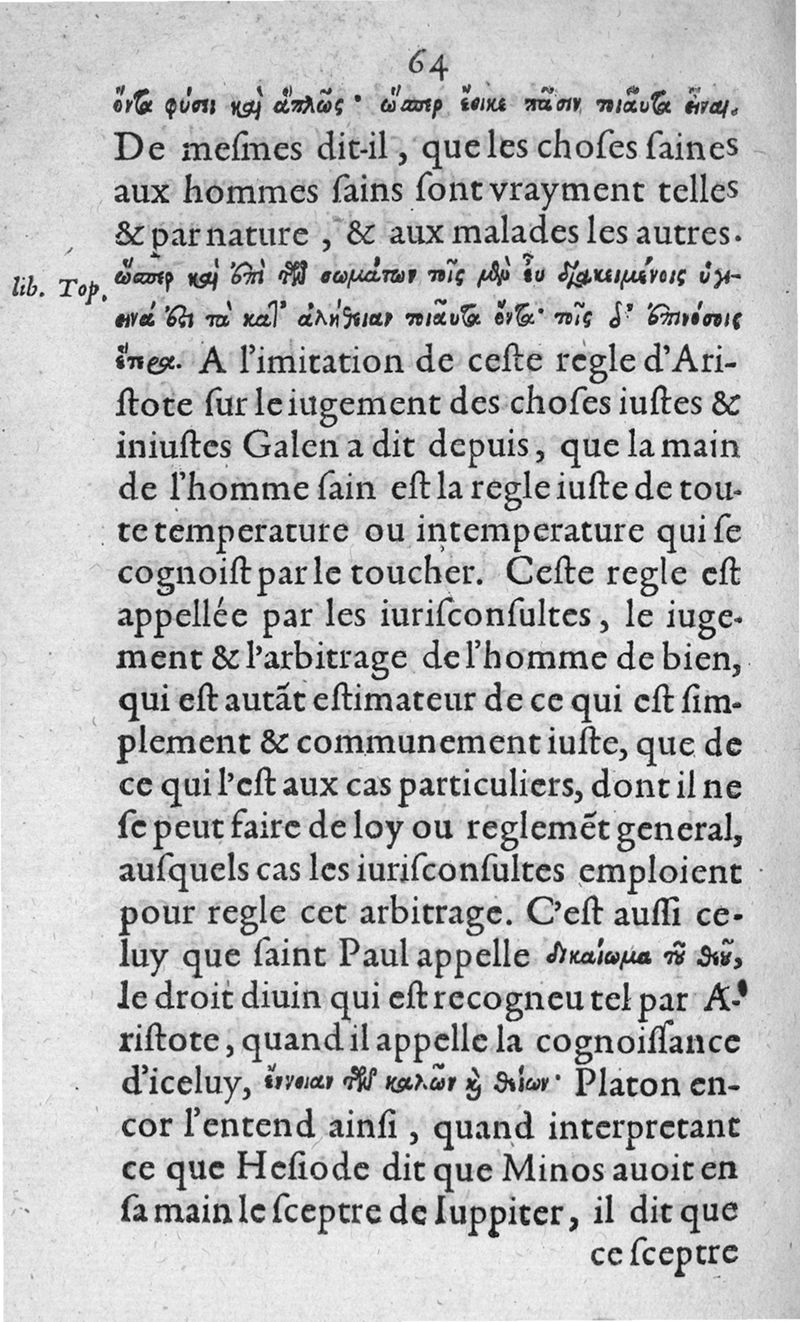 64
ὄντα φύσει καὶ ἁπλῶς· ὥσπερ ἔοικε πᾶσιν τοιαῦτα εἶναι.
De meſmes dit-il, que les choſes ſaines
aux hommes ſains ſont vrayment telles
& par nature, & aux malades les autres.
lib. Top.
ὥσπερ καὶ ἐπὶ τῶν σωμάτων τοῖς μὲν εὖ διακειμένοις ὑγι-
εινά ἐστι τὰ κατ' ἀλήθειαν τοιαῦτα ὄντα· τοῖς δ' ἐπινόσοις
ἕτερα. A l'imitation de ceſte regle d'Ari-
ſtote ſur le iugement des choſes iuſtes &
iniuſtes Galen a dit depuis, que la main
de l'homme ſain eſt la regle iuſte de tou-
te temperature ou intemperature qui ſe
cognoiſt par le toucher. Ceſte regle eſt
appellée par les iuriſconſultes, le iuge-
ment & l'arbitrage de l'homme de bien,
qui eſt autãt eſtimateur de ce qui eſt ſim-
plement & communement iuſte, que de
ce qui l'eſt aux cas particuliers, dont il ne
ſe peut faire de loy ou reglemẽt general,
auſquels cas les iuriſconſultes emploient
pour regle cet arbitrage. C'eſt auſſi ce-
luy que ſaint Paul appelle δικαίωμα τοῦ θεοῦ,
le droit diuin qui eſt recogneu tel par A-
riſtote, quand il appelle la cognoiſſance
d'iceluy, ἔννοιαν τῶν καλῶν καὶ θείων· Platon en-
cor l'entend ainſi, quand interpretant
ce que Heſiode dit que Minos auoit en
ſa main le ſceptre de Iuppiter, il dit que
ce ſceptre